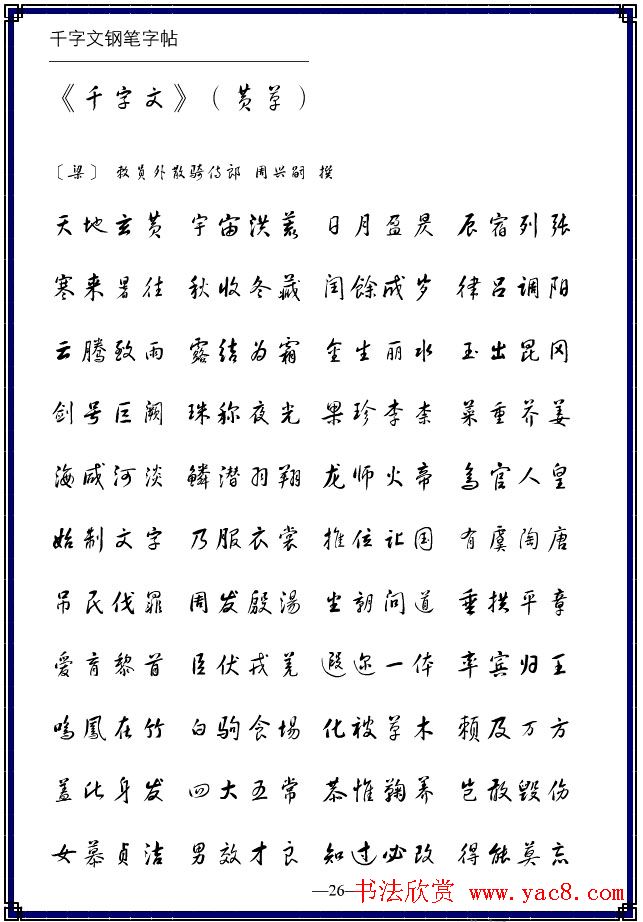 千字文钢笔字帖
《千字文》（黄草）
〔梁〕 敕员外散骑侍郎 周兴嗣 撰
天地玄黄 宇宙洪荒 日月盈昃 辰宿列张
寒来暑往 秋收冬藏 闰餘成岁 律吕调阳
云腾致雨 露结为霜 金生丽水 玉出昆冈
剑号巨阙 珠称夜光 果珍李柰 菜重芥姜
海咸河淡 鳞潜羽翔 龙师火帝 鸟官人皇
始制文字 乃服衣裳 推位让国 有虞陶唐
吊民伐罪 周发殷汤 坐朝问道 垂拱平章
爱育黎首 臣伏戎羌 遐迩一体 率宾归王
鸣凤在竹 白驹食场 化被草木 赖及万方
盖此身发 四大五常 恭惟鞠养 岂敢毁伤
女慕贞洁 男效才良 知过必改 得能莫忘
—26—
书法欣赏 www.yac8.com